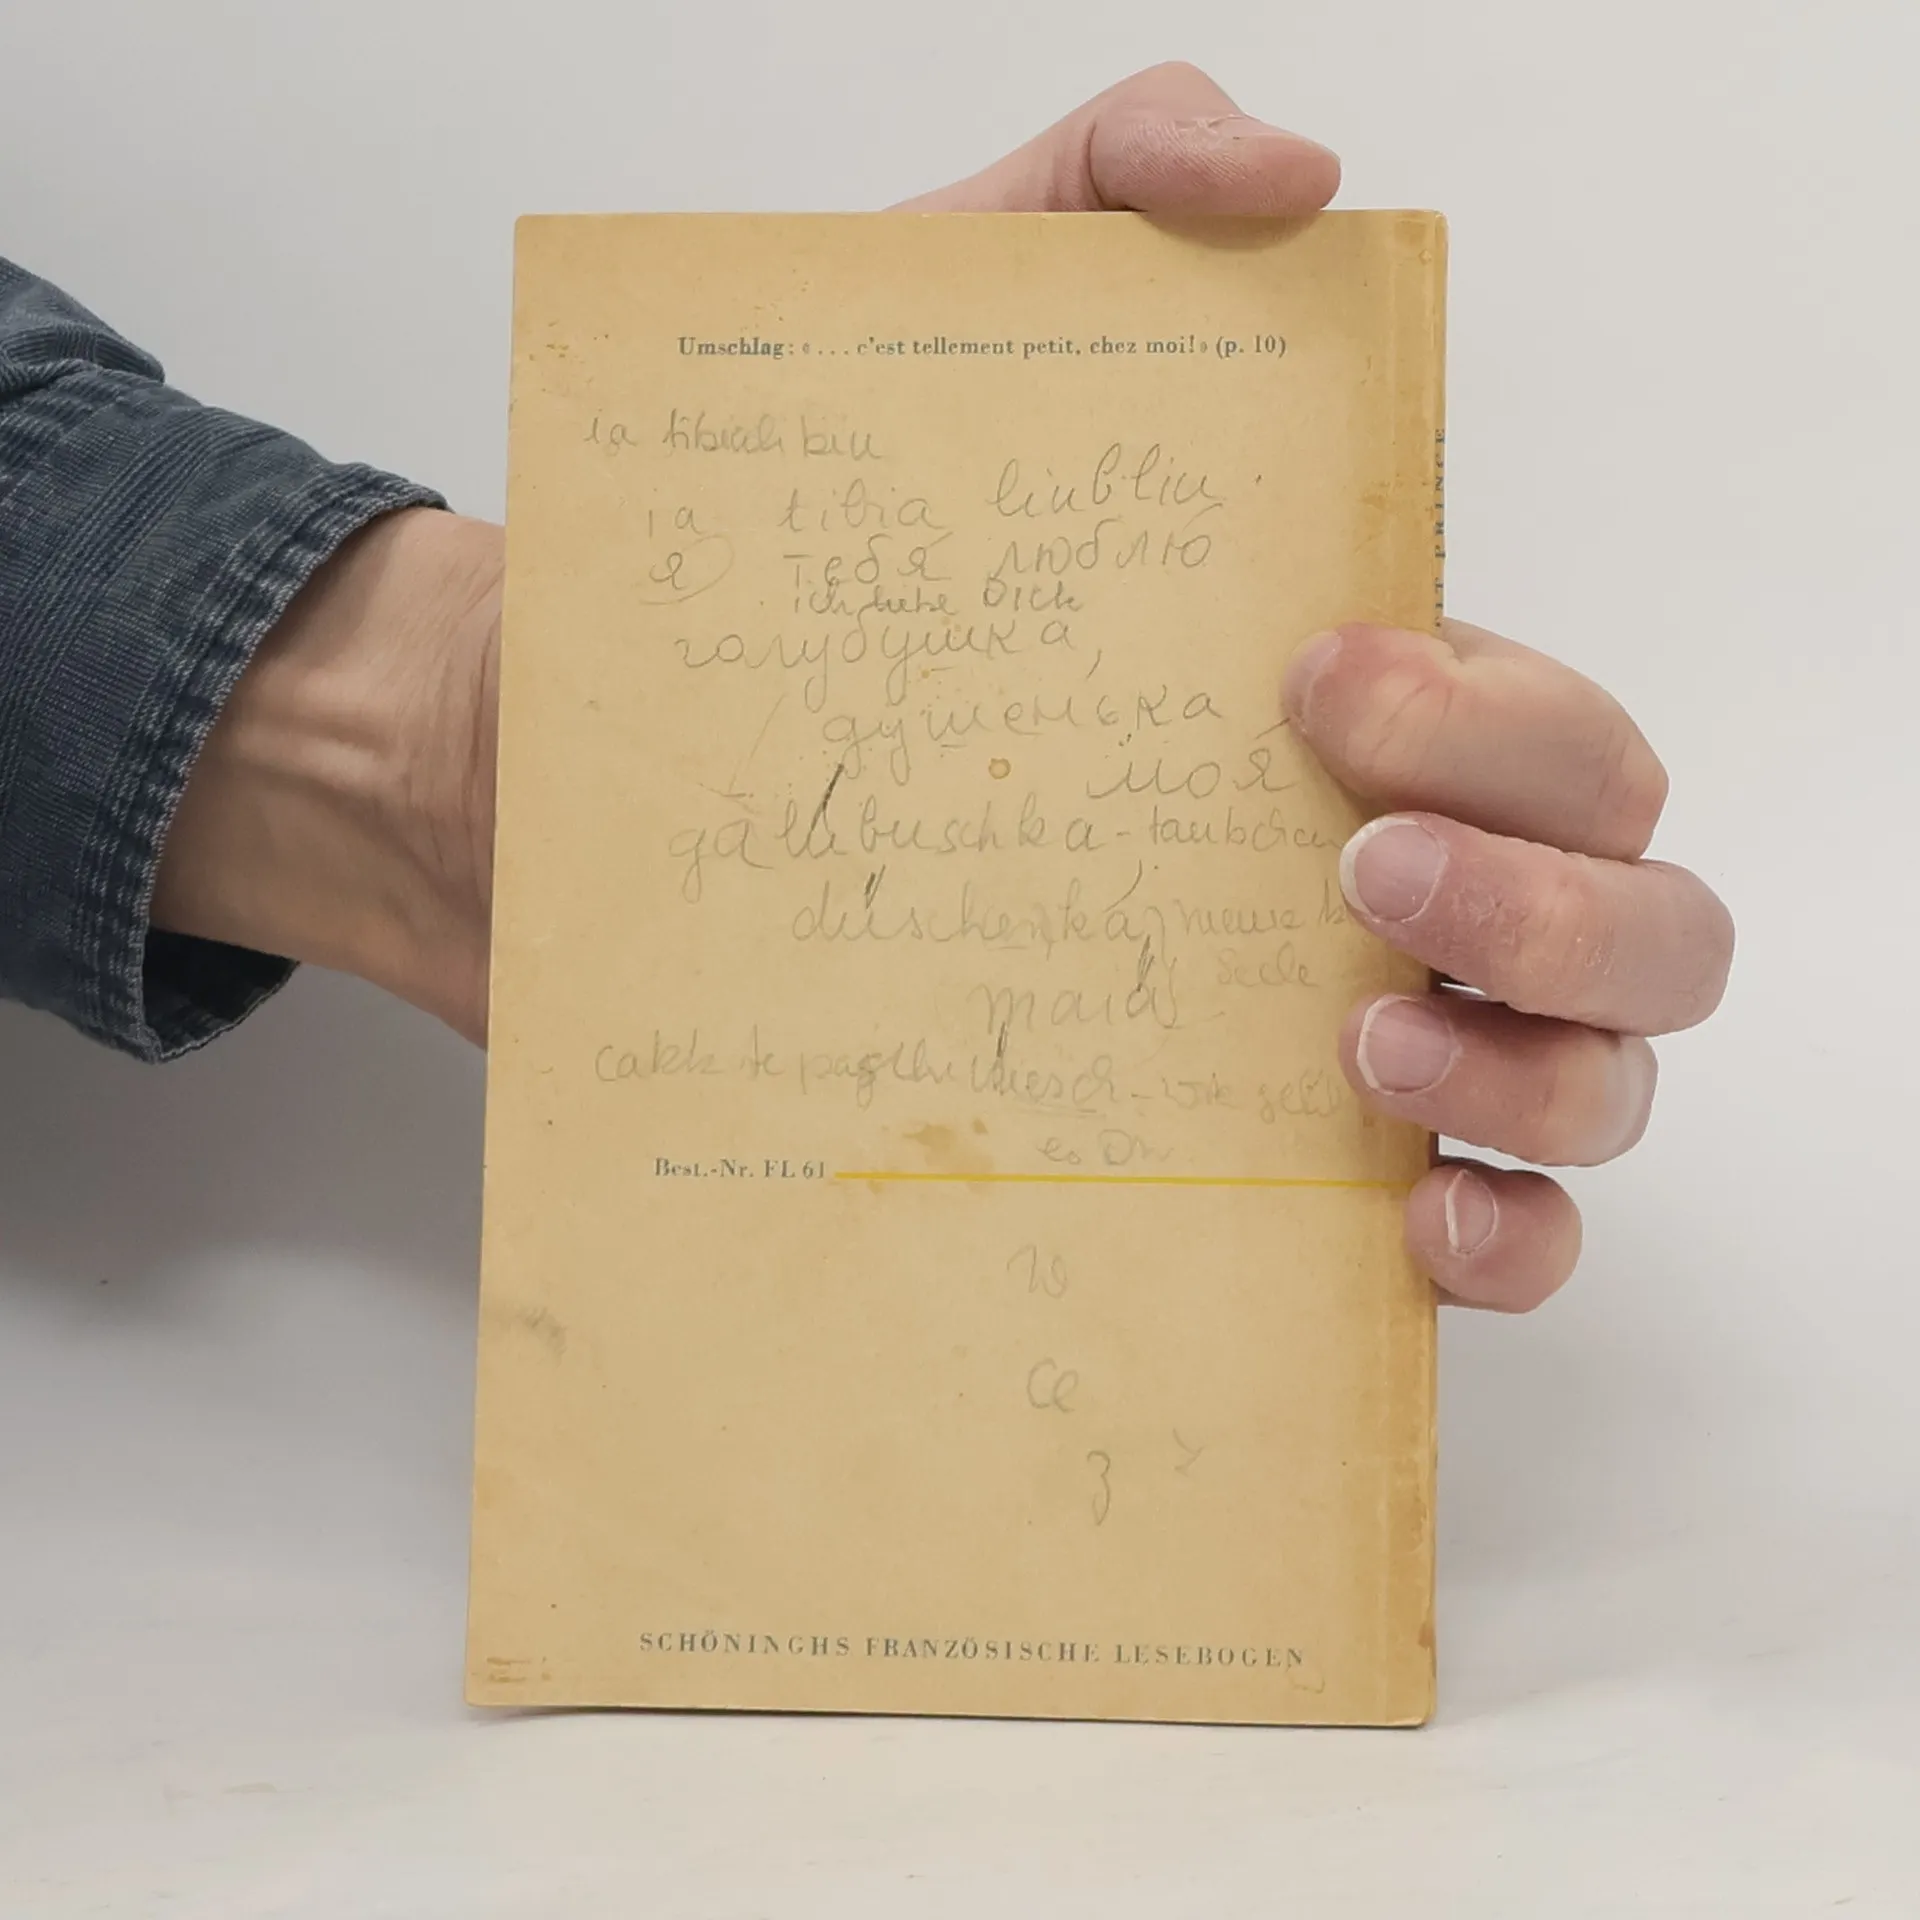 Umschlag: « ... c'est tellement petit, chez moi! » (p. 10)
ia
ia tibia liubliu.
я тебя люблю
ich liebe Dich
голубушка,
душенька
моя
galubuschka - täubchen
duschenka, meine
Seele
maia
wie
es Dir
Best.-Nr. FL 61
ce
З
SCHÖNINGHS FRANZÖSISCHE LESEBOGEN
PRINCE